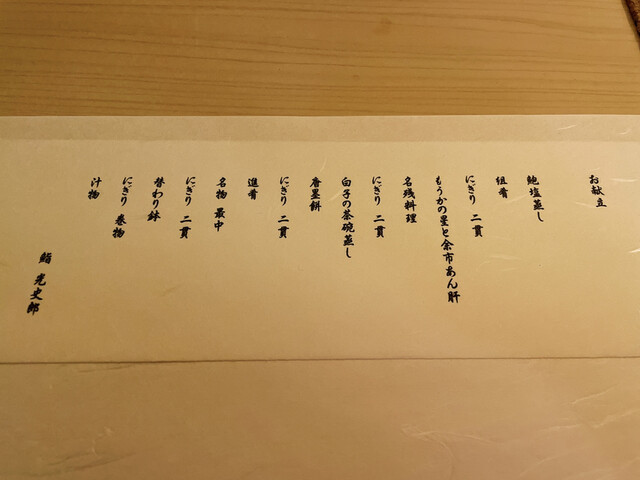 お献立
鮑塩蒸し
組肴
にぎり 二貫
もうかの星と余市あん肝
名残料理
にぎり 二貫
白子の茶碗蒸し
唐墨餅
にぎり 二貫
進肴
名物 最中
にぎり 二貫
替わり鉢
にぎり 巻物
汁物
鮨 光史郎